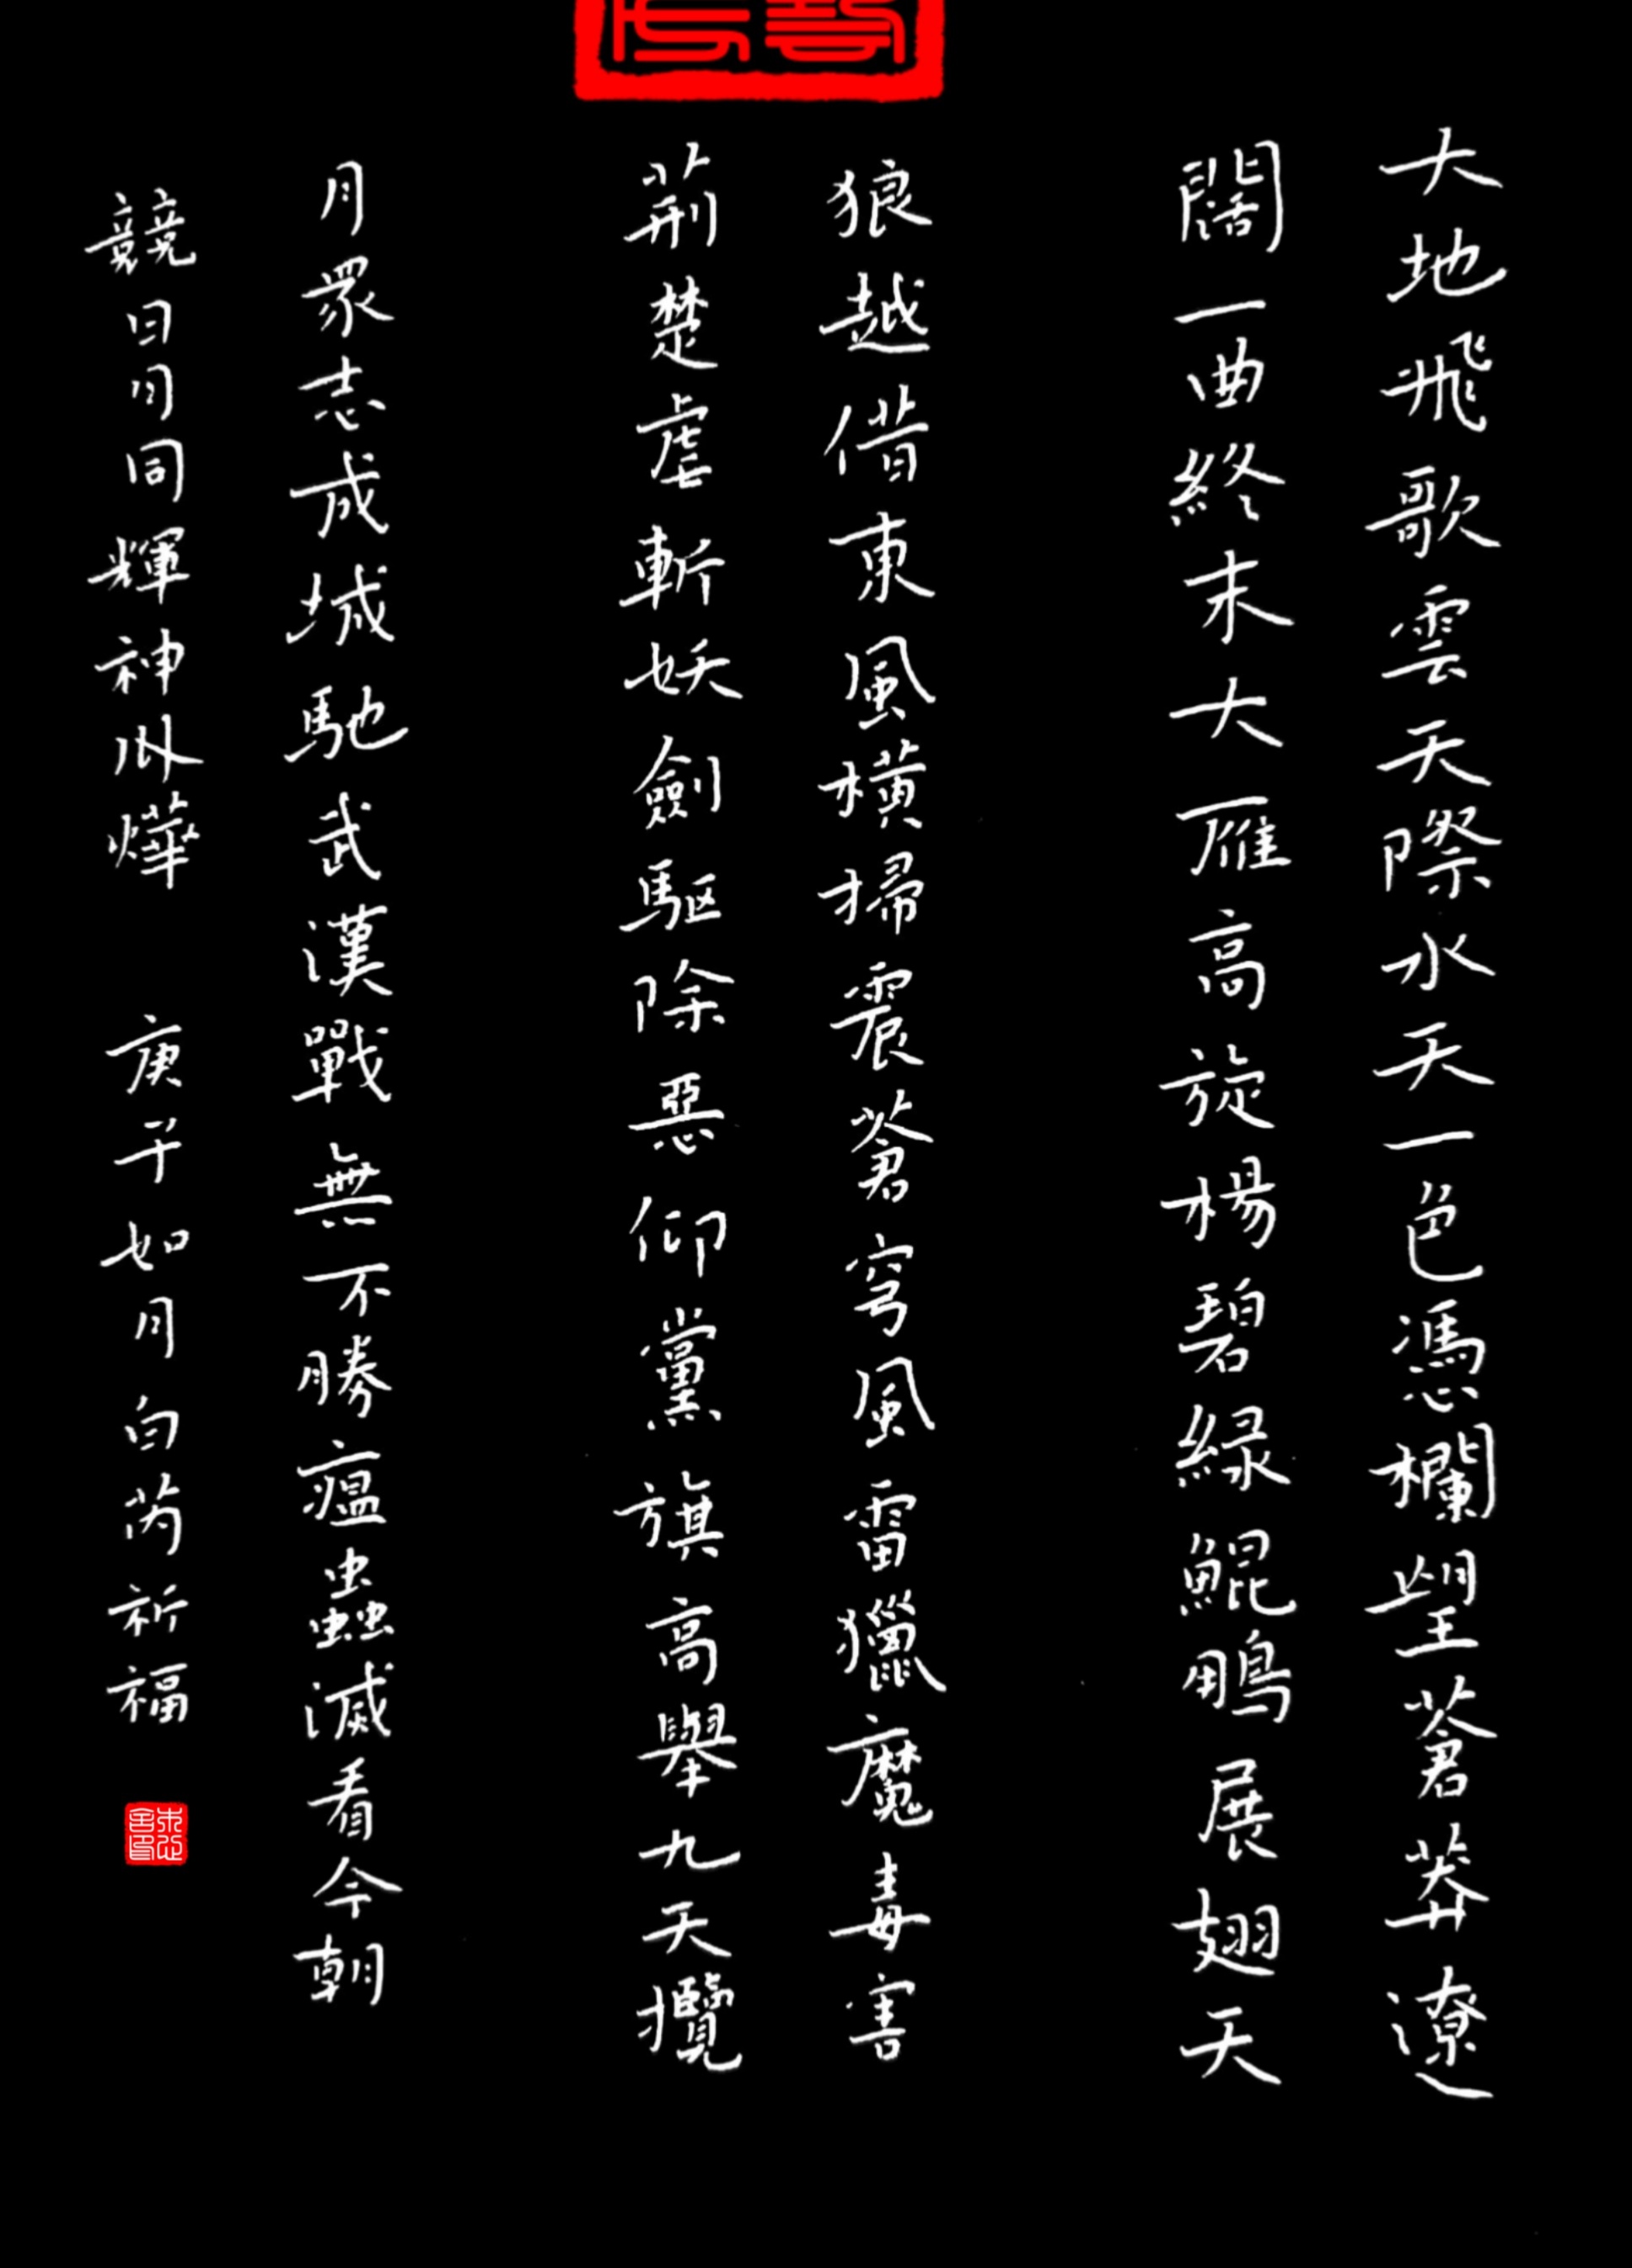 大地飛歌雲天天際水天一色憑欄望蒼莽遼
闊一曲終末大雁高旋楊碧綠鯤鵬展翅天
狼越借東風橫掃震蒼穹風雷獵魔毒害
荊楚虐斬妖劍驅除惡仰黨旗高舉九天攬
月眾志成城馳武漢戰無不勝瘟蟲滅看今朝
競日月同輝神州燁 庚子如月白芮祈福